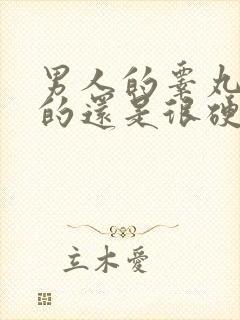 男人的睾丸
的還是很硬
立木愛